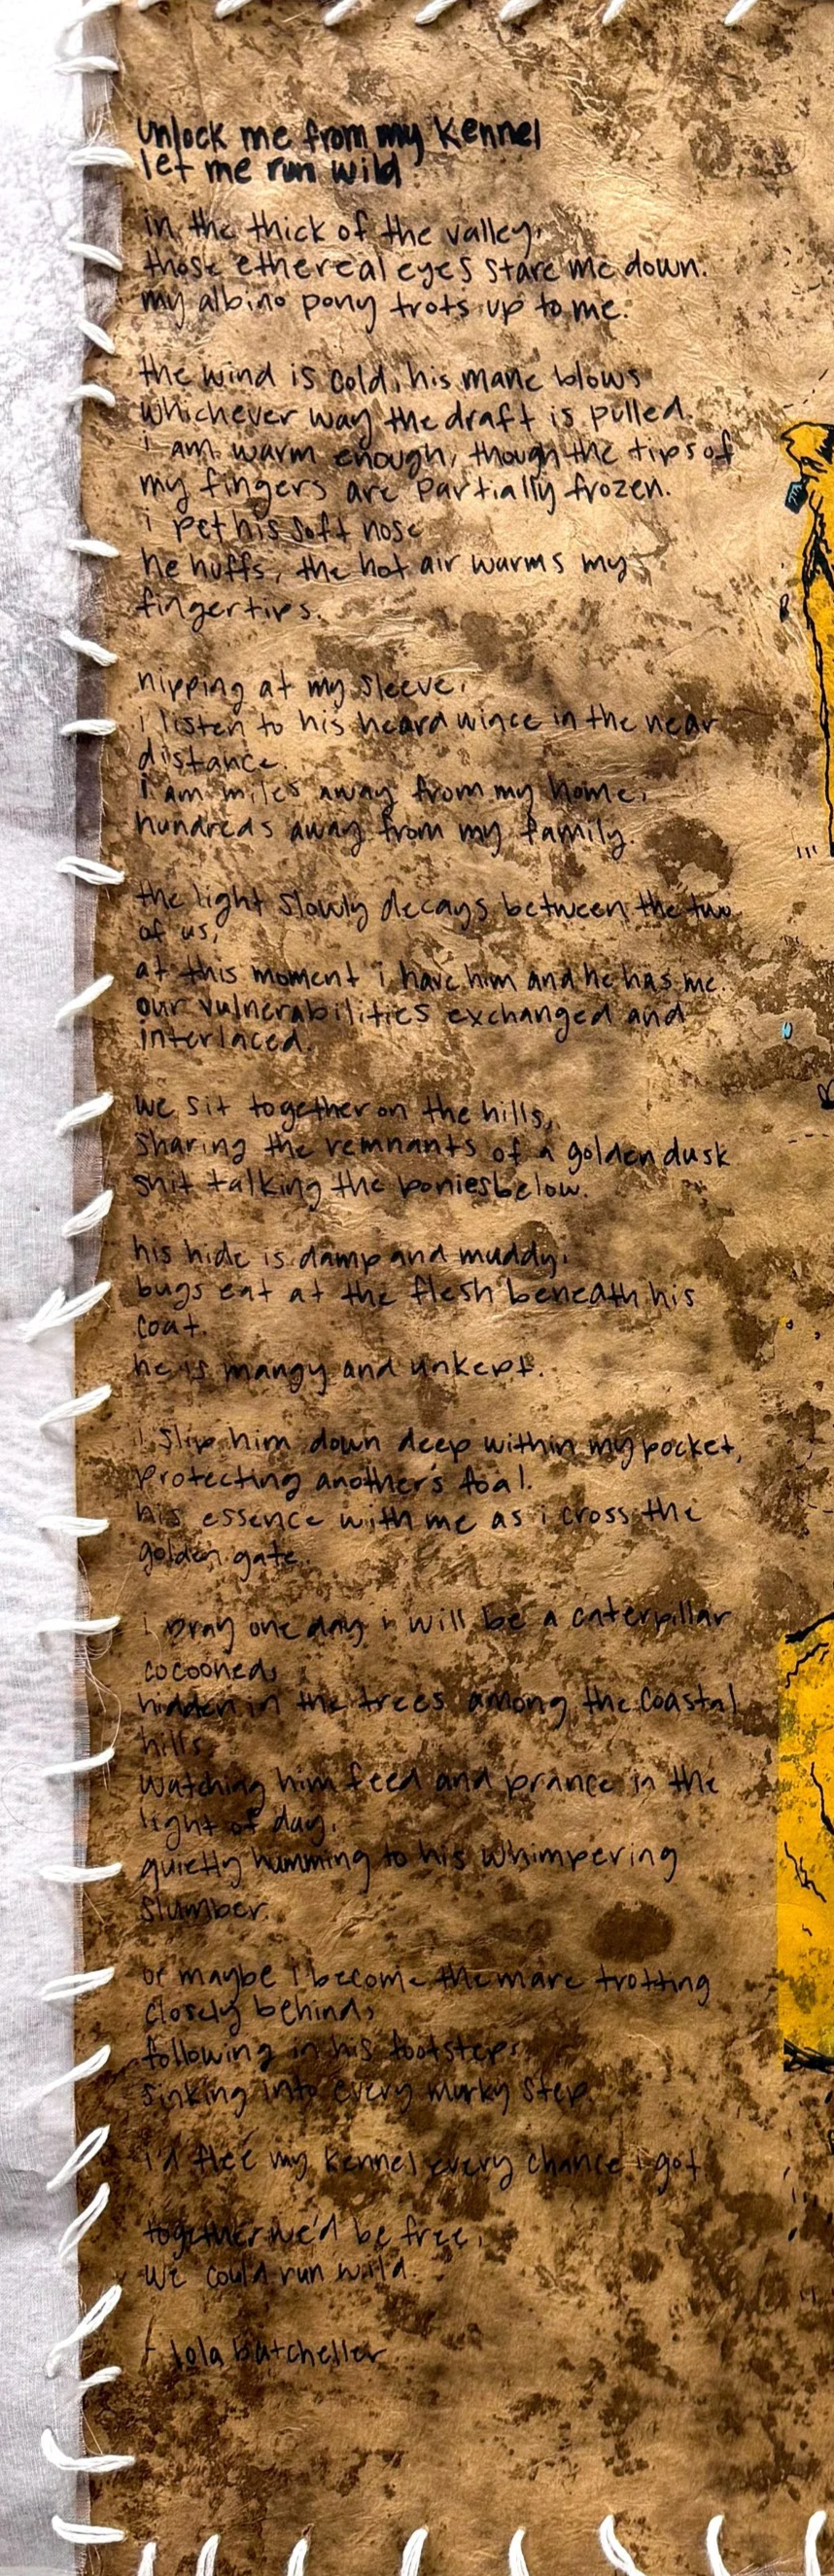 unlock me from my kennel
let me run wild
in the thick of the valley,
those ethereal eyes stare me down.
my albino pony trots up to me.
the wind is cold, his mane blows
whichever way the draft is pulled.
i am warm enough, though the tips of
my fingers are partially frozen.
i pet his soft nose
he huffs, the hot air warms my
fingertips.
nipping at my sleeve,
i listen to his heard wince in the near
distance.
i am miles away from my home,
hundreds away from my family.
the light slowly decays between the two
of us,
at this moment i have him and he has me.
our vulnerabilities exchanged and
interlaced.
we sit together on the hills,
sharing the remnants of a golden dusk
shit talking the ponies below.
his hide is damp and muddy,
bugs eat at the flesh beneath his
coat.
he is mangy and unkept.
i slip him down deep within my pocket,
protecting another's foal.
his essence with me as i cross the
golden gate.
i pray one day i will be a caterpillar
cocooned,
hidden in the trees among the coastal
hills
watching him feed and prance in the
light of day,
quietly humming to his whimpering
slumber.
or maybe i become the mare trotting
closely behind,
following in his footsteps
sinking into every murky step.
i'd flee my kennel every chance i got
together we'd be free,
we could run wild.
- lola batcheller